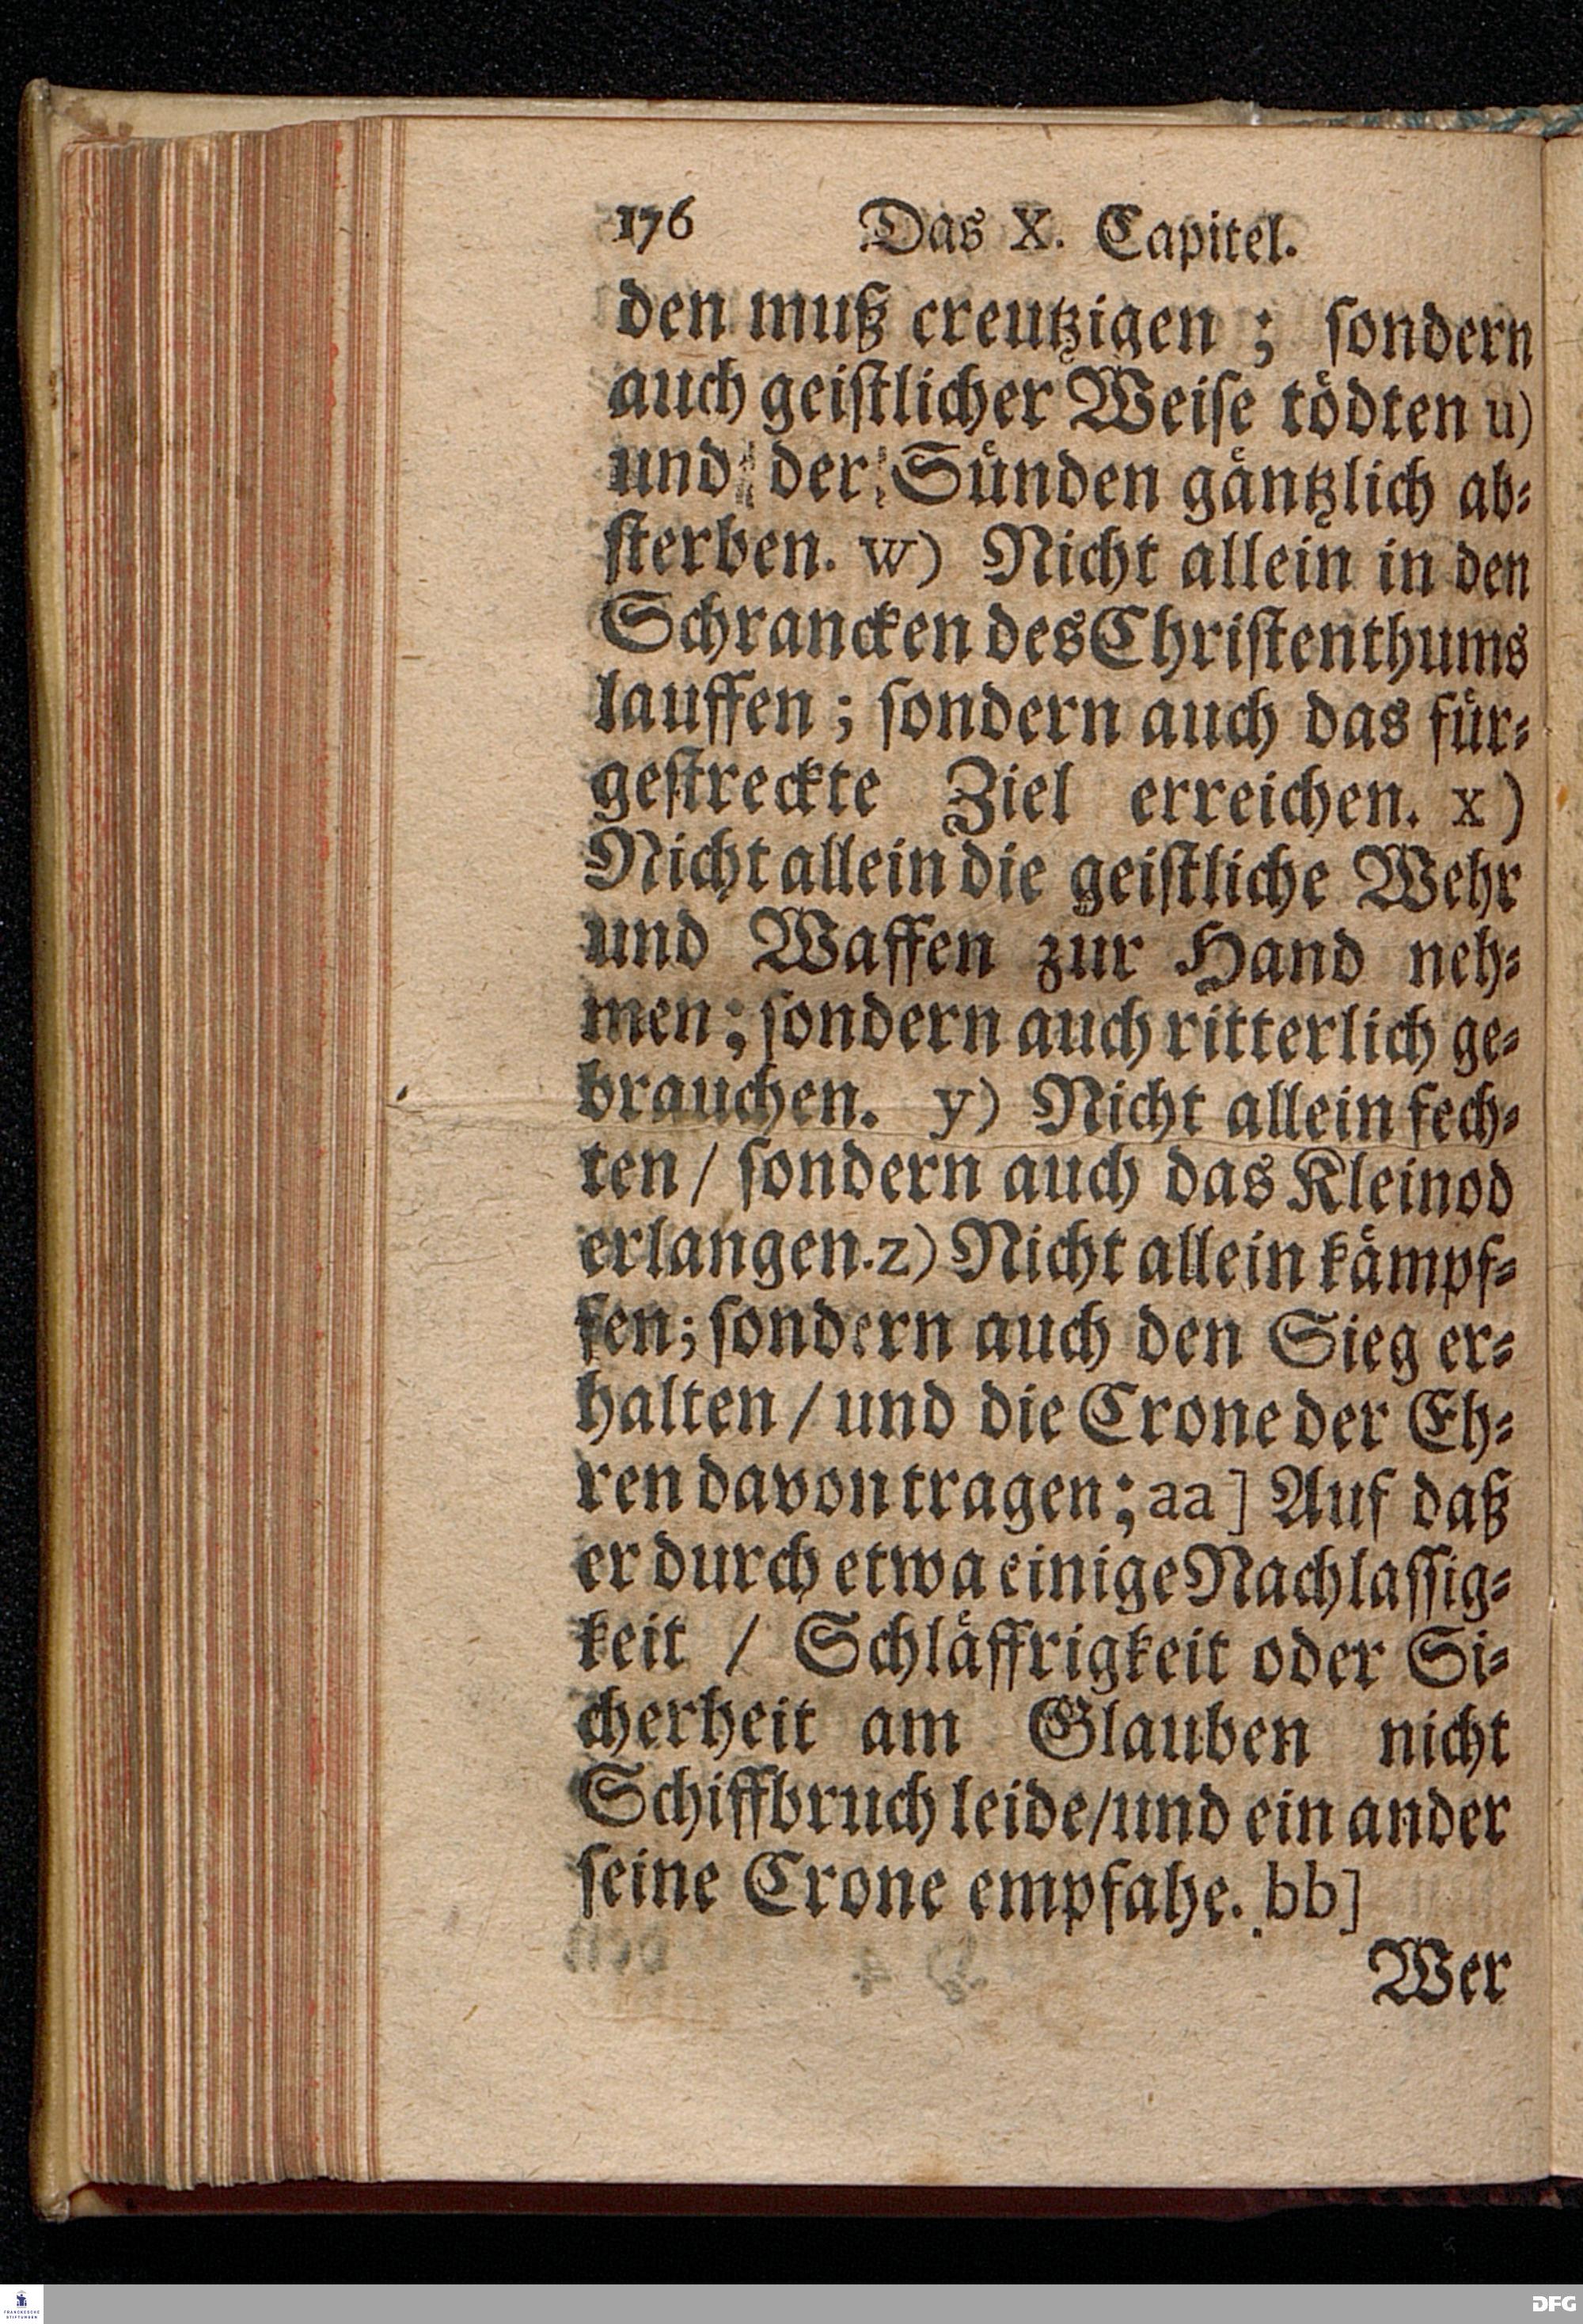 176 Das X. Capitel.
den muß creutzigen ; ſondern
auch geiſtlicher Weiſe toͤdten u)
und der Suͤnden gaͤntzlich ab⸗
ſterben. w) Nicht allein in den
Schrancken des Chriſtenthums
lauffen ; ſondern auch das fuͤr⸗
geſtreckte Ziel erreichen. x)
Nicht allein die geiſtliche Wehr
und Waffen zur Hand neh⸗
men ; ſondern auch ritterlich ge⸗
brauchen. y) Nicht allein fech⸗
ten / ſondern auch das Kleinod
erlangen. z) Nicht allein kaͤmpf⸗
fen; ſondern auch den Sieg er⸗
halten / und die Crone der Eh⸗
ren davon tragen ; aa] Auf daß
er durch etwa einige Nachlaſſig⸗
keit / Schlaͤffrigkeit oder Si⸗
cherheit am Glauben nicht
Schiffbruch leide/und ein ander
ſeine Crone empfahe. bb]
Wer
FRANCKESCHE
STIFTUNGEN
DFG